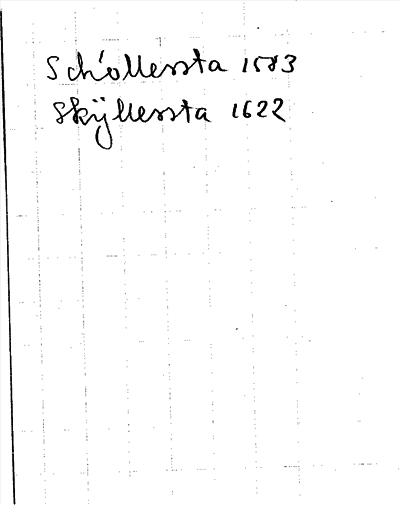 Schöllessta 1583
Skÿllessta 1622